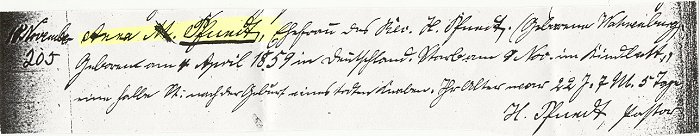 November Anna M. Pfundt, Ehefrau des Rev. H. Pfundt, (Geborene
205 Geboren am 4 April 1859 in Deutschland. Starb am 9 Nov. im Kindbett,
eine halbe St. nach der Geburt eines todten Knaben. Ihr Alter war 22 J. 7 M. 5 Tage
H. Pfundt Pastor